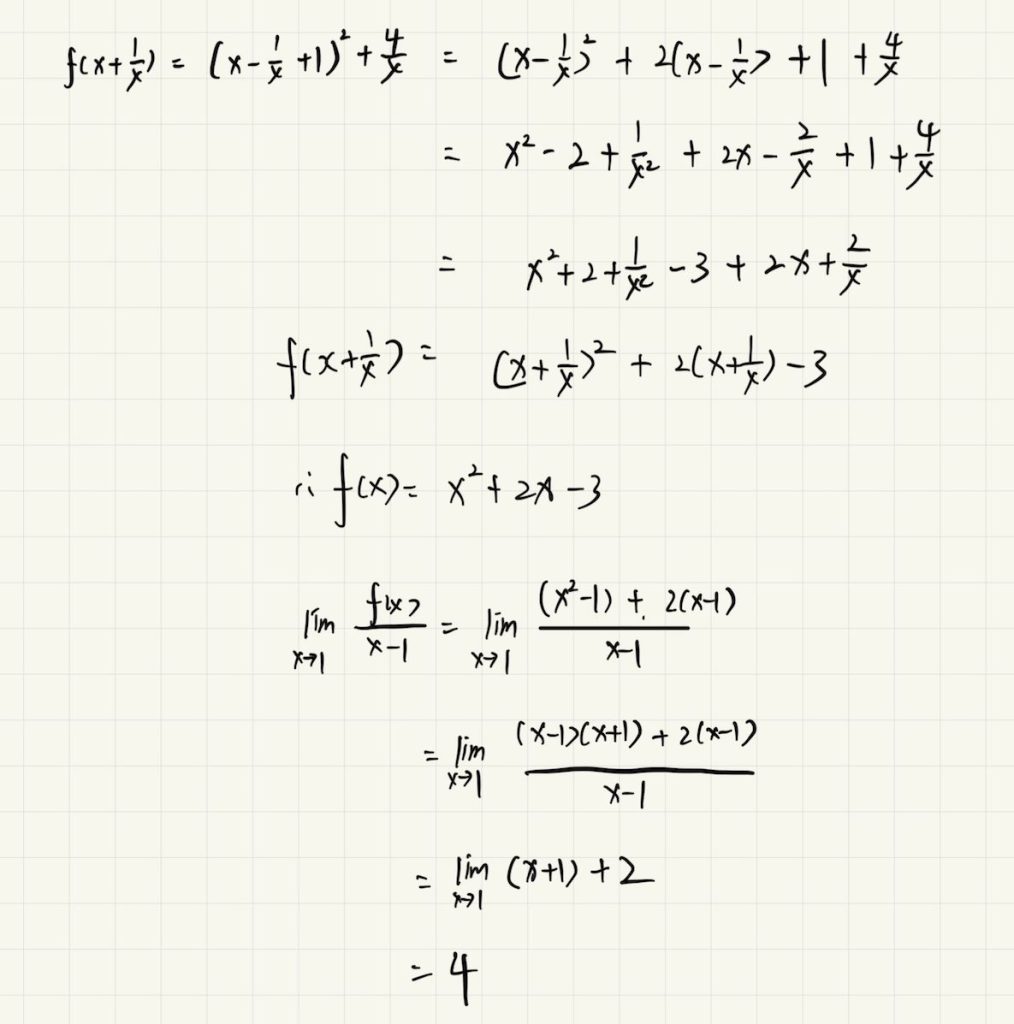 f(x+1/x) = (x-1/x+1)² + 4/x = (x-1/x)² + 2(x-1/x) + 1 + 4/x
= x² - 2 + 1/x² + 2x - 2/x + 1 + 4/x
= x² + 2 + 1/x² - 3 + 2x + 2/x
f(x+1/x) = (x+1/x)² + 2(x+1/x) - 3
∴ f(x) = x² + 2x - 3
lim x→1 f(x)/(x-1) = lim x→1 ((x²-1) + 2(x-1))/(x-1)
= lim x→1 ((x-1)(x+1) + 2(x-1))/(x-1)
= lim x→1 (x+1) + 2
= 4